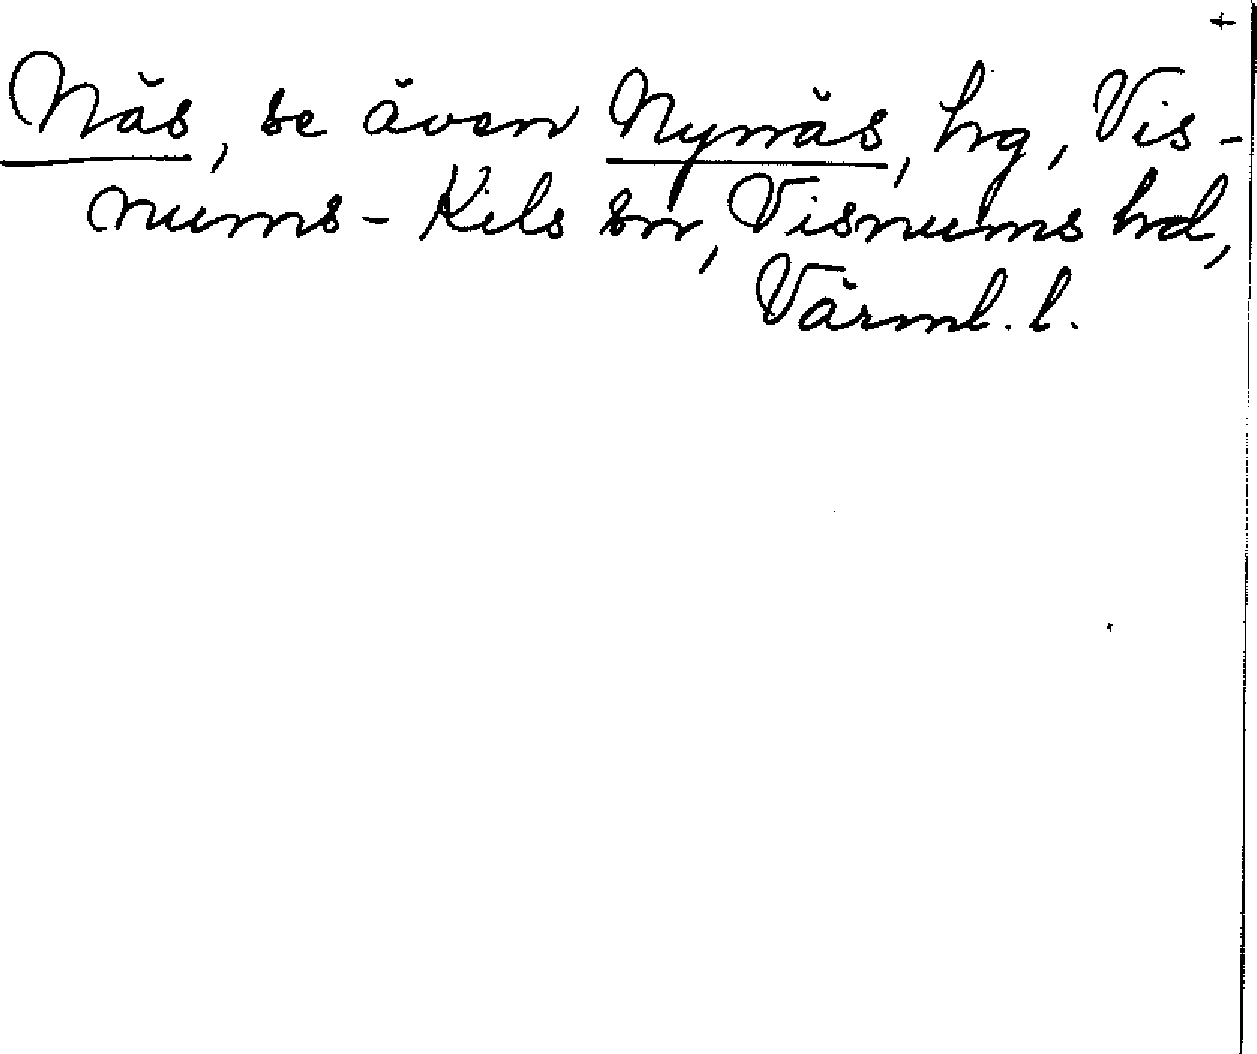 +
Näs, se även Nynäs, hrg, Vis-
nums-Kils sn, Visnums hd,
Värml. l.